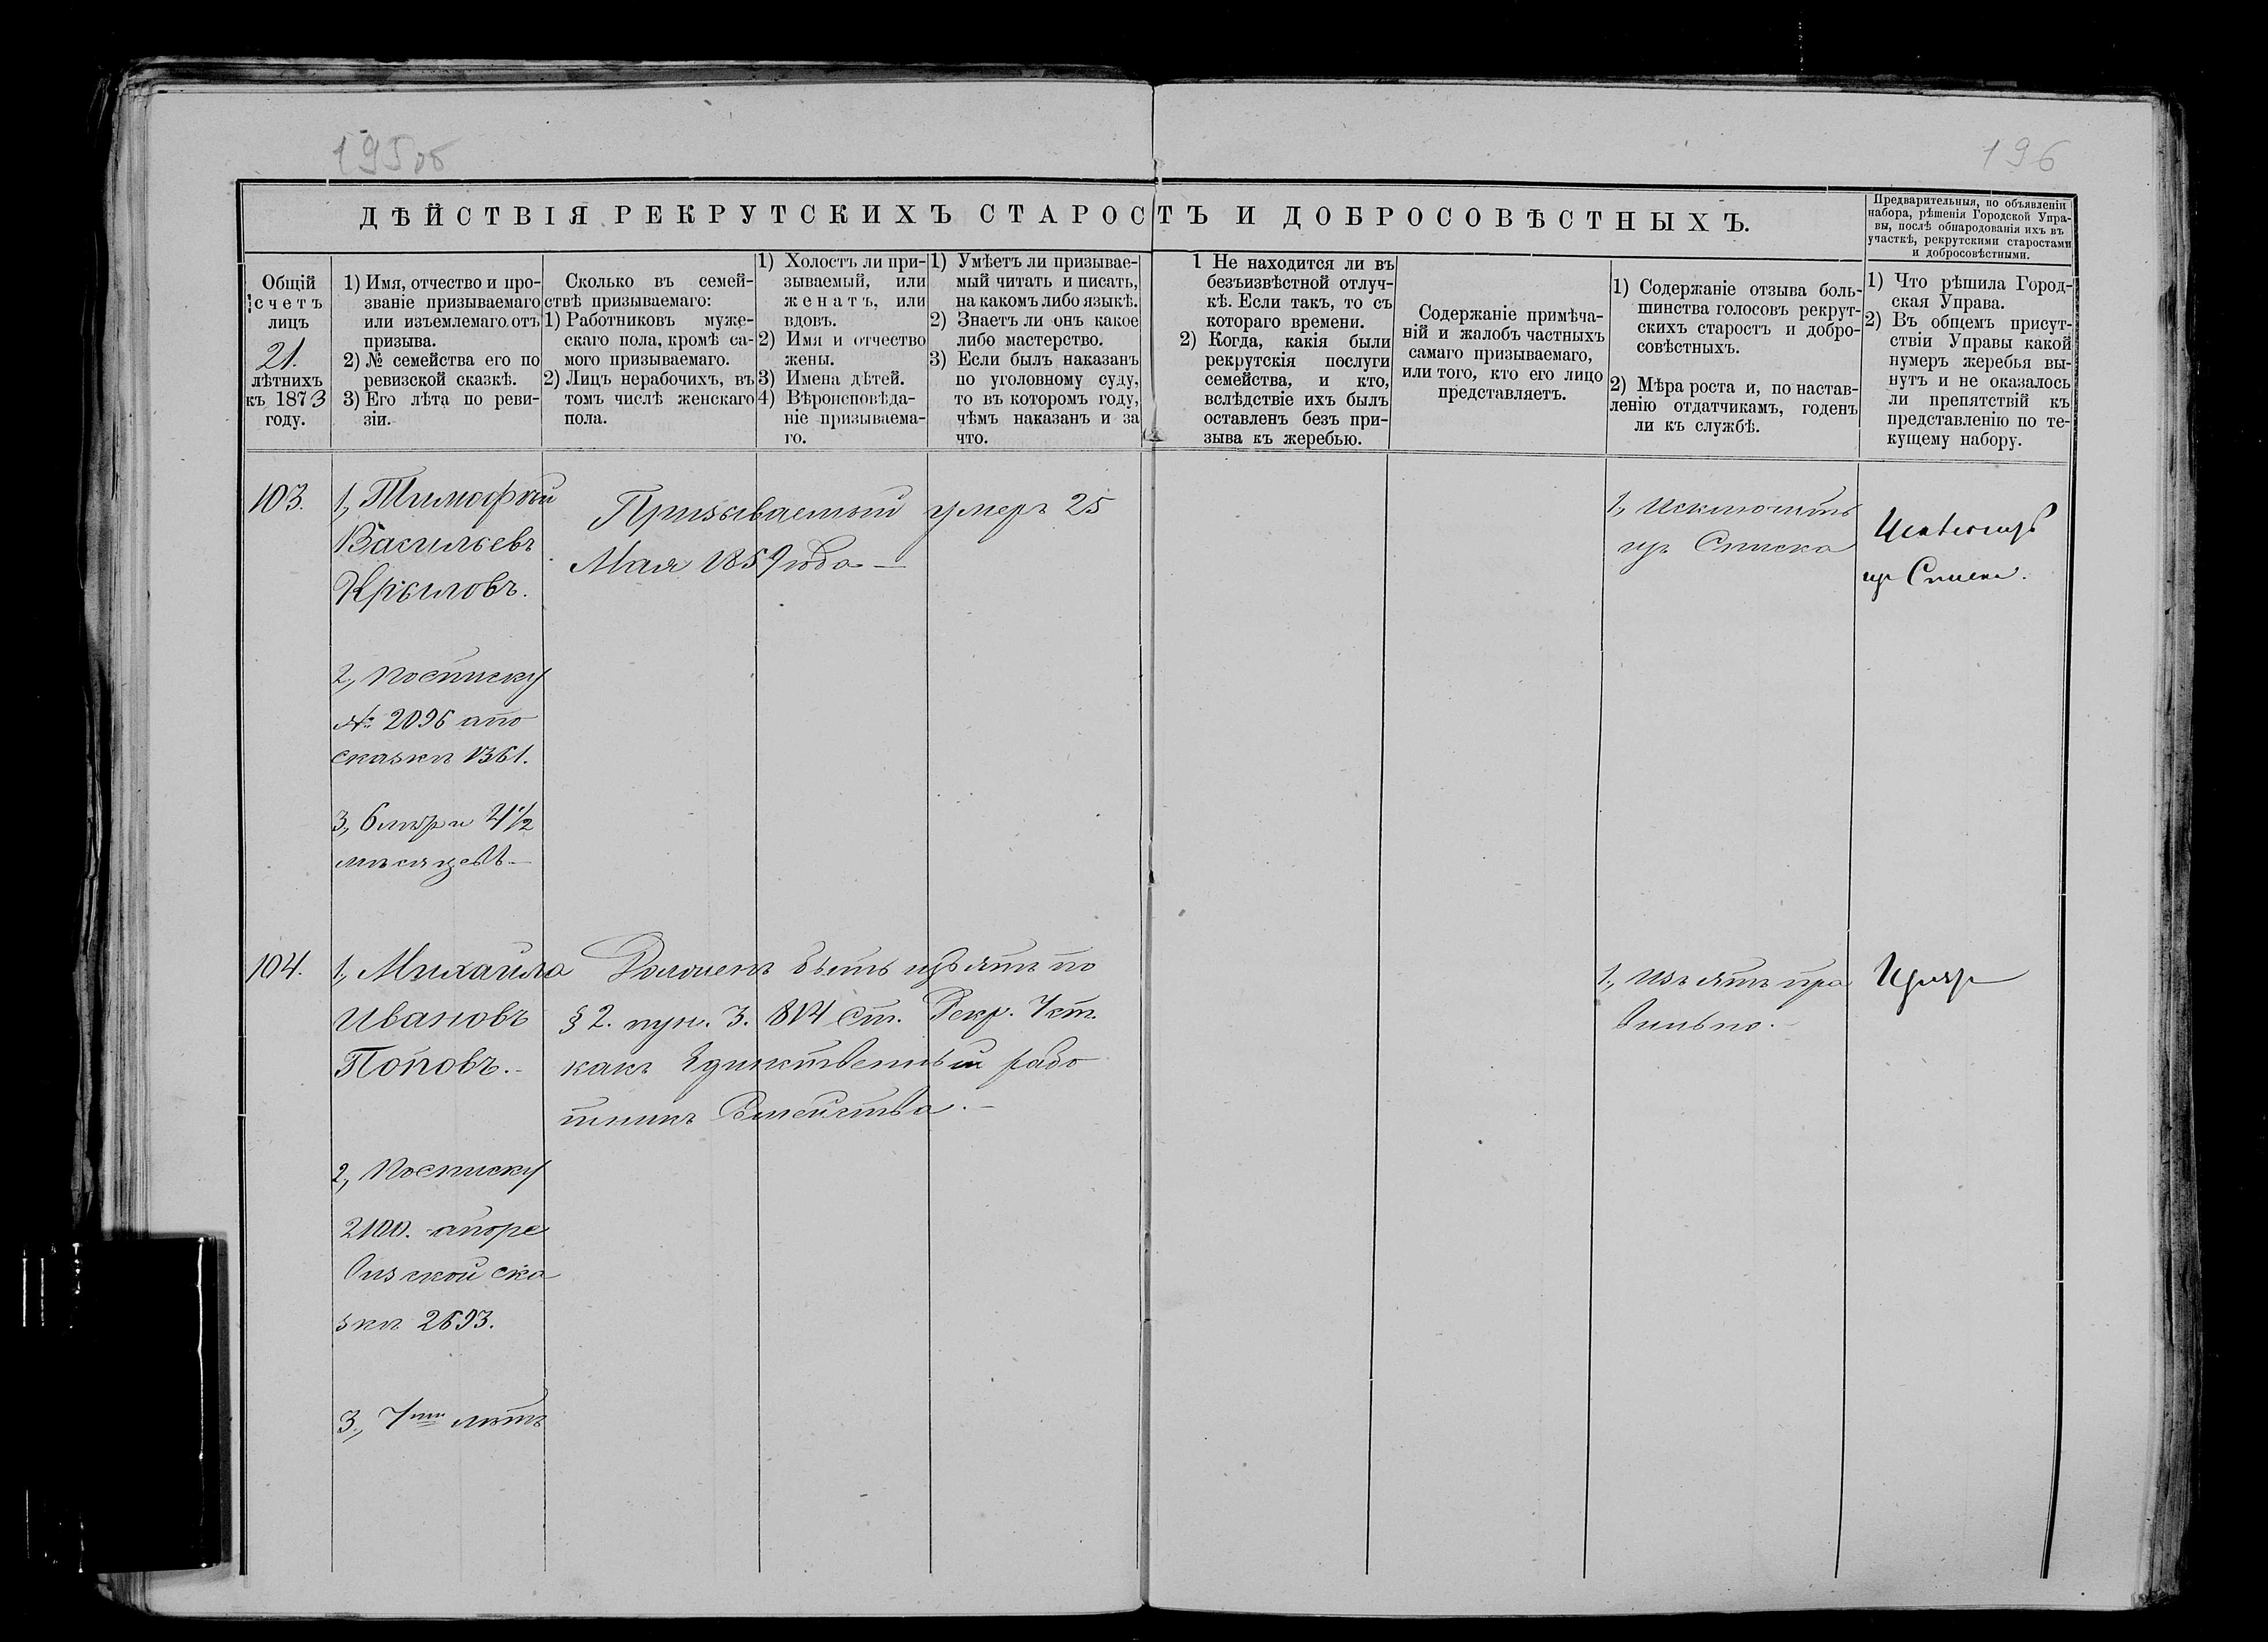 195об
196
ДѢЙСТВІЯ РЕКРУТСКИХЪ СТАРОСТЪ И ДОБРОСОВѢСТНЫХЪ.
Предварительныя, по объявленіи
набора, рѣшенія Городской Упра-
вы, послѣ обнародованія ихъ въ
участкѣ, рекрутскими старостами
и добросовѣстными.
Общій
счетъ
лицъ
21.
лѣтнихъ
къ 1873
году.
1) Имя, отчество и про-
званіе призываемаго
или изъемлемаго отъ
призыва.
2) № семейства его по
ревизской сказкѣ.
3) Его лѣта по реви-
зіи.
Сколько въ семей-
ствѣ призываемаго:
1) Работниковъ муже-
скаго пола, кромѣ са-
мого призываемаго.
2) Лицъ нерабочихъ, въ
томъ числѣ женскаго
пола.
1) Холостъ ли при-
зываемый, или
женатъ, или
вдовъ.
2) Имя и отчество
жены.
3) Имена дѣтей.
4) Вѣроисповѣда-
ніе призываема-
го.
1) Умѣетъ ли призывае-
мый читать и писать,
на какомъ либо языкѣ.
2) Знаетъ ли онъ какое
либо мастерство.
3) Если былъ наказанъ
по уголовному суду,
то въ которомъ году,
чѣмъ наказанъ и за
что.
1 Не находится ли въ
безъизвѣстной отлуч-
кѣ. Если такъ, то съ
котораго времени.
2) Когда, какія были
рекрутскія послуги
семейства, и кто,
вслѣдствіе ихъ былъ
оставленъ безъ при-
зыва къ жеребью.
Содержаніе примѣча-
ній и жалобъ частныхъ
самаго призываемаго,
или того, кто его лицо
представляетъ.
1) Содержаніе отзыва боль-
шинства голосовъ рекрут-
скихъ старостъ и добро-
совѣстныхъ.
2) Мѣра роста и, по настав-
ленію отдатчикамъ, годенъ
ли къ службѣ.
1) Что рѣшила Город-
ская Управа.
2) Въ общемъ присут-
ствіи Управы какой
нумеръ жеребья вы-
нутъ и не оказалось
ли препятствій къ
представленію по те-
кущему набору.
103.
1, Тимофѣй
Васильевъ
Крыловъ.
2, По списку
№ 2096 а по
сказкѣ 1361.
3, 6 лѣтъ и 4 1/2
мѣсяцевъ.—
Призываемый умеръ 25
Мая 1859 года —
1, Исключить
изъ Списка
изъ Списка.
104.
1, Михаила
Ивановъ
Поповъ.-
2, По списку
2100. а по ре
визской ска
зкѣ 2693.
3, 7ми лѣтъ
Долженъ быть изъятъ по
§ 2. пун. 3. 814 ст. Рекр. Уст.
какъ Единственный рабо
тникъ Семейства.-
1, Изъятъ пра
вильно.-